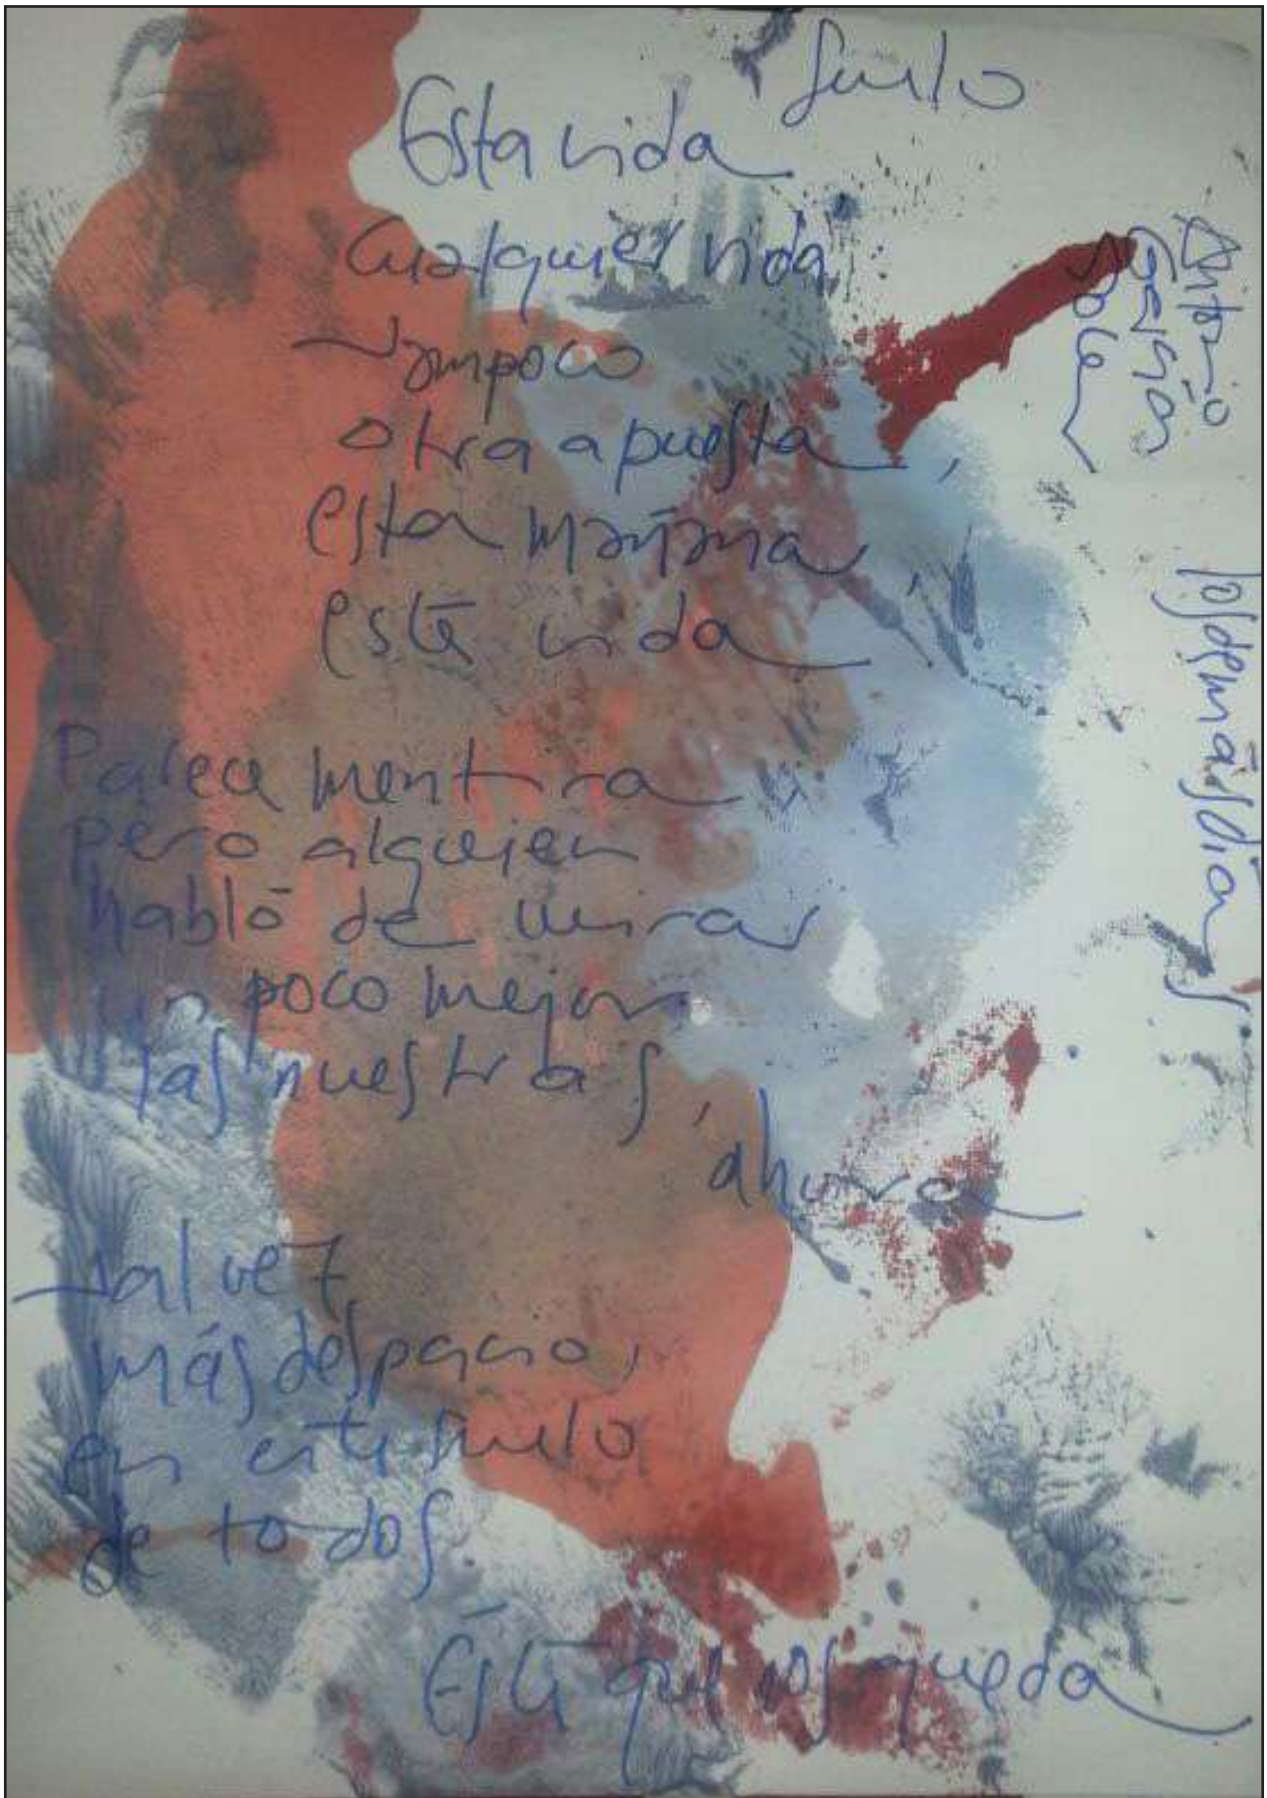 Suelo
Esta vida
Cualquier vida
Tampoco
otra apuesta,
esta mañana,
esta vida
Parece mentira
pero alguien
habló de mirar
un poco mejor
las nuestras,
ahora
Tal vez
más despacio,
en este suelo
de todos
Este que nos queda
Antonio
los demás días